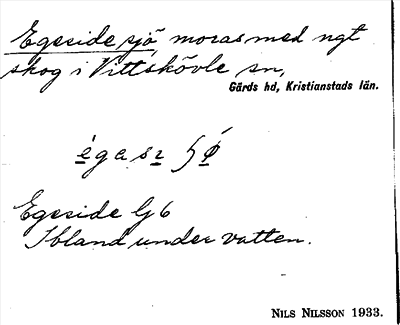 Egeside sjö, moras med ngt
skog i Vittskövle sn,
Gärds hd, Kristianstads län.
Egeside Gj 6
Ibland under vatten.
NILS NILSSON 1933.